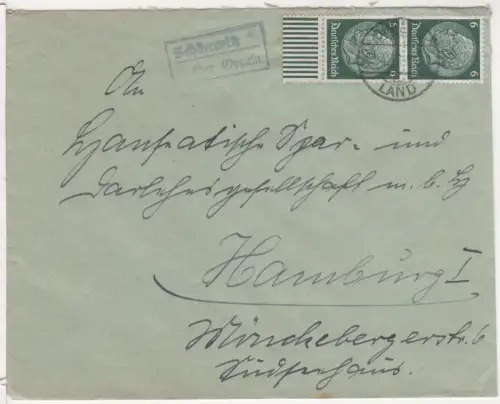 Schönwitz
über Oppeln
Deutsches Reich
6
Deutsches Reich
6
LAND
An
Hanseatische Spar- und
Darlehensgesellschaft m. b. H
Hamburg I
Mönckebergerstr. 6
Südseehaus.